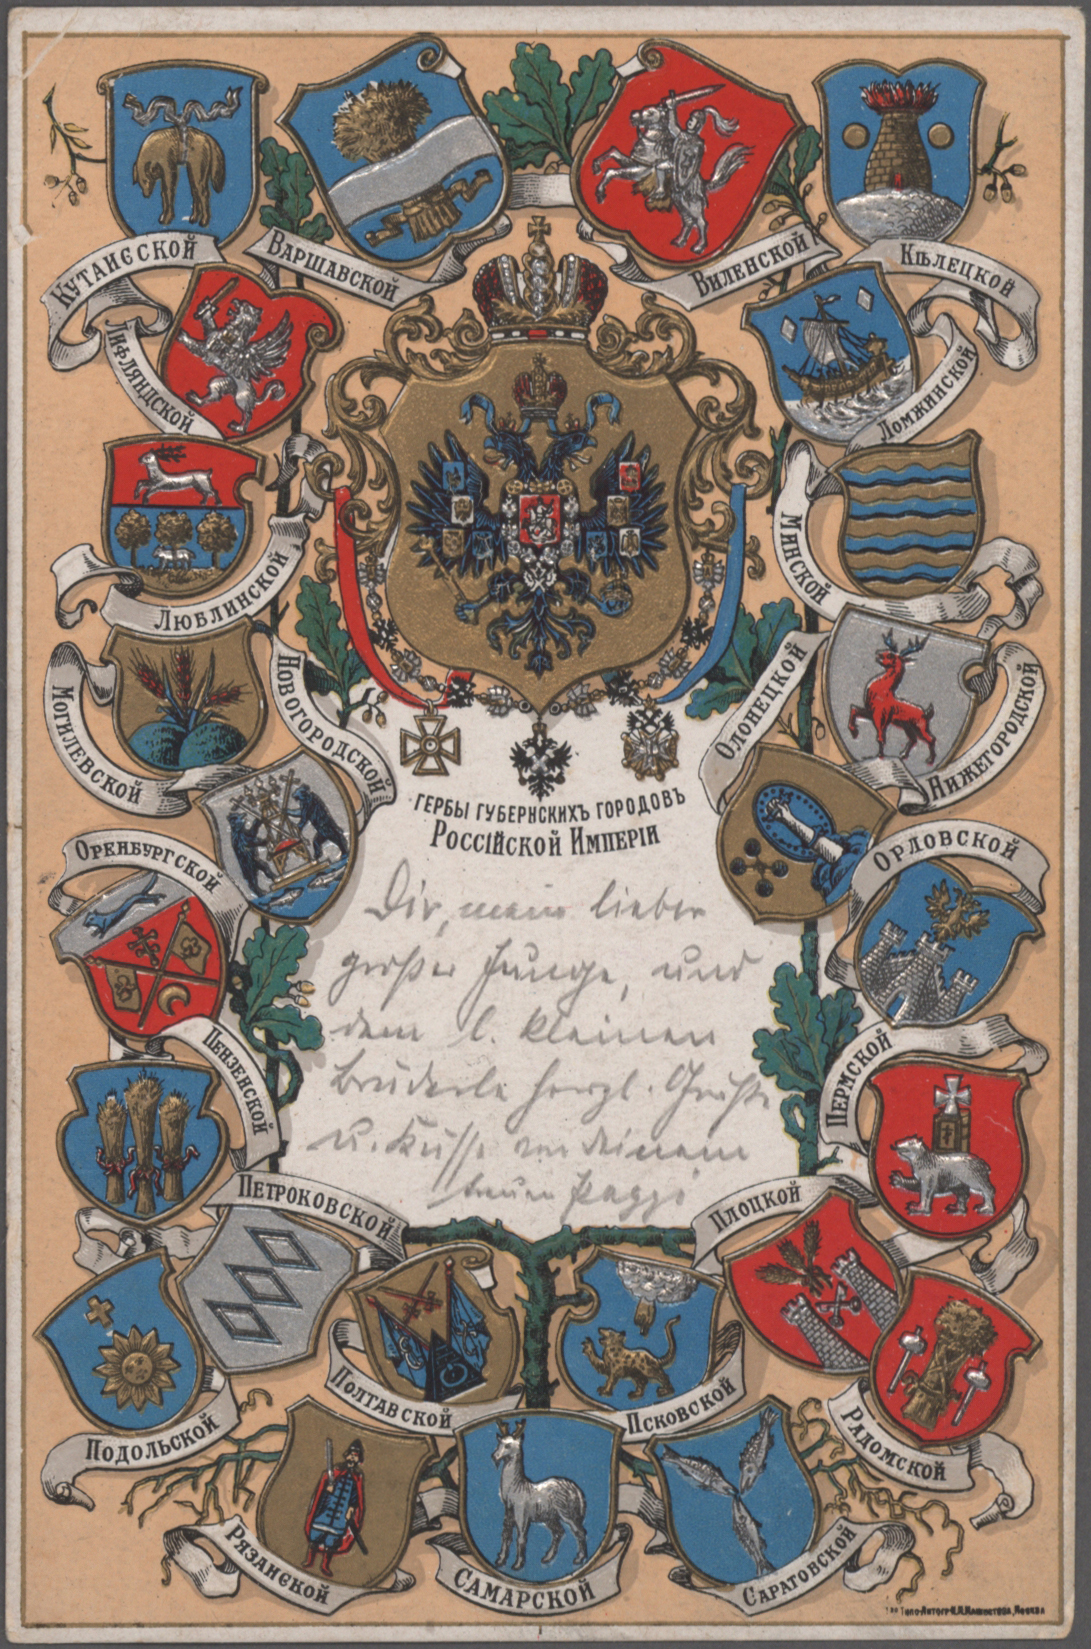 КУТАИССКОЙ
ВАРШАВСКОЙ
ВИЛЕНСКОЙ
КѢЛЕЦКОЙ
ЛИФЛЯНДСКОЙ
ЛОМЖИНСКОЙ
ЛЮБЛИНСКОЙ
МИНСКОЙ
МОГИЛЕВСКОЙ
НОВОГОРОДСКОЙ
ОЛОНЕЦКОЙ
НИЖЕГОРОДСКОЙ
ГЕРБЫ ГУБЕРНСКИХЪ ГОРОДОВЪ
РОССІЙСКОЙ ИМПЕРІИ
ОРЕНБУРГСКОЙ
ОРЛОВСКОЙ
Dir, mein lieber
großer Junge, und
dem l. kleinen
Brüderle herzl. Grüße
u. Küsse von deinem
Pappi
ПЕНЗЕНСКОЙ
ПЕРМСКОЙ
ПЕТРОКОВСКОЙ
ПЛОЦКОЙ
ПОДОЛЬСКОЙ
ПОЛТАВСКОЙ
ПСКОВСКОЙ
РАДОМСКОЙ
РЯЗАНСКОЙ
САМАРСКОЙ
САРАТОВСКОЙ
Типо-Литогр. И.М.Машистова, Москва